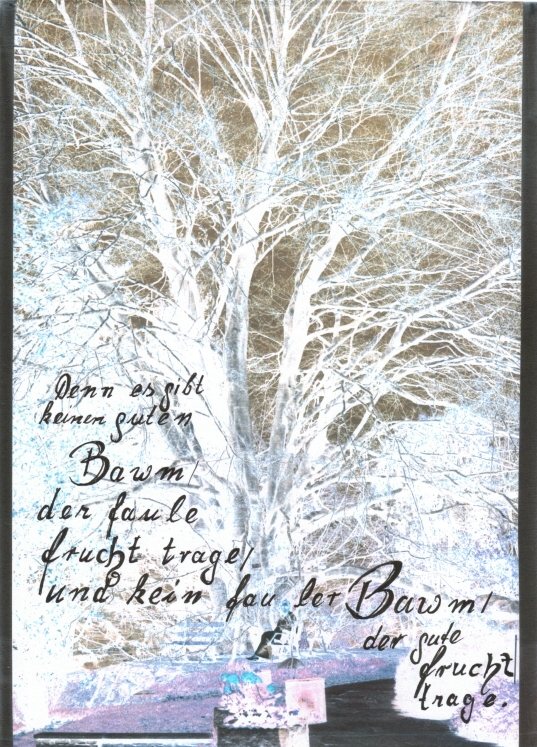 Denn es gibt
keinen guten
Bawm/
der faule
frucht trage/
und kein fauler Bawm/
der gute
frucht
trage.